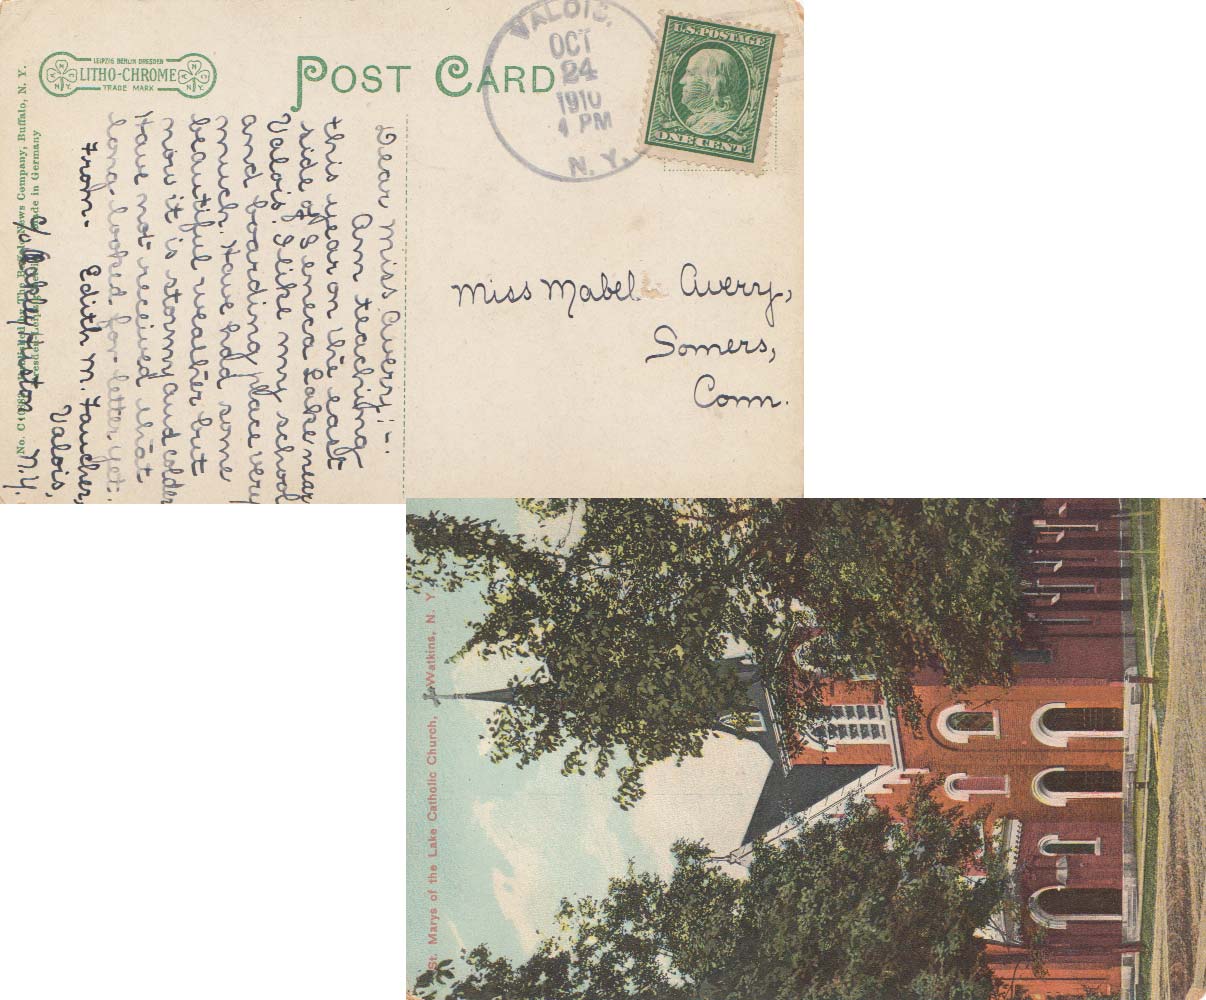 LEIPZIG BERLIN DRESDEN
LITHO-CHROME
TRADE MARK
N
Y
N
Y
POST CARD
VALOIS,
OCT
24
1910
4 PM
N. Y.
U.S. POSTAGE
ONE CENT
Miss Mabel Avery,
Somers,
Conn.
Dear Miss Avery:-
Am teaching
this year on the east
side of Seneca Lake near
Valois. I like my school
and boarding place very
much. Have had some
beautiful weather but
now it is stormy and colder
Have not received that
long-looked for letter yet.
From- Edith M. Faucher,
Valois,
N.Y.
News Company, Buffalo, N. Y.
Made in Germany
St. Marys of the Lake Catholic Church, Watkins, N. Y.